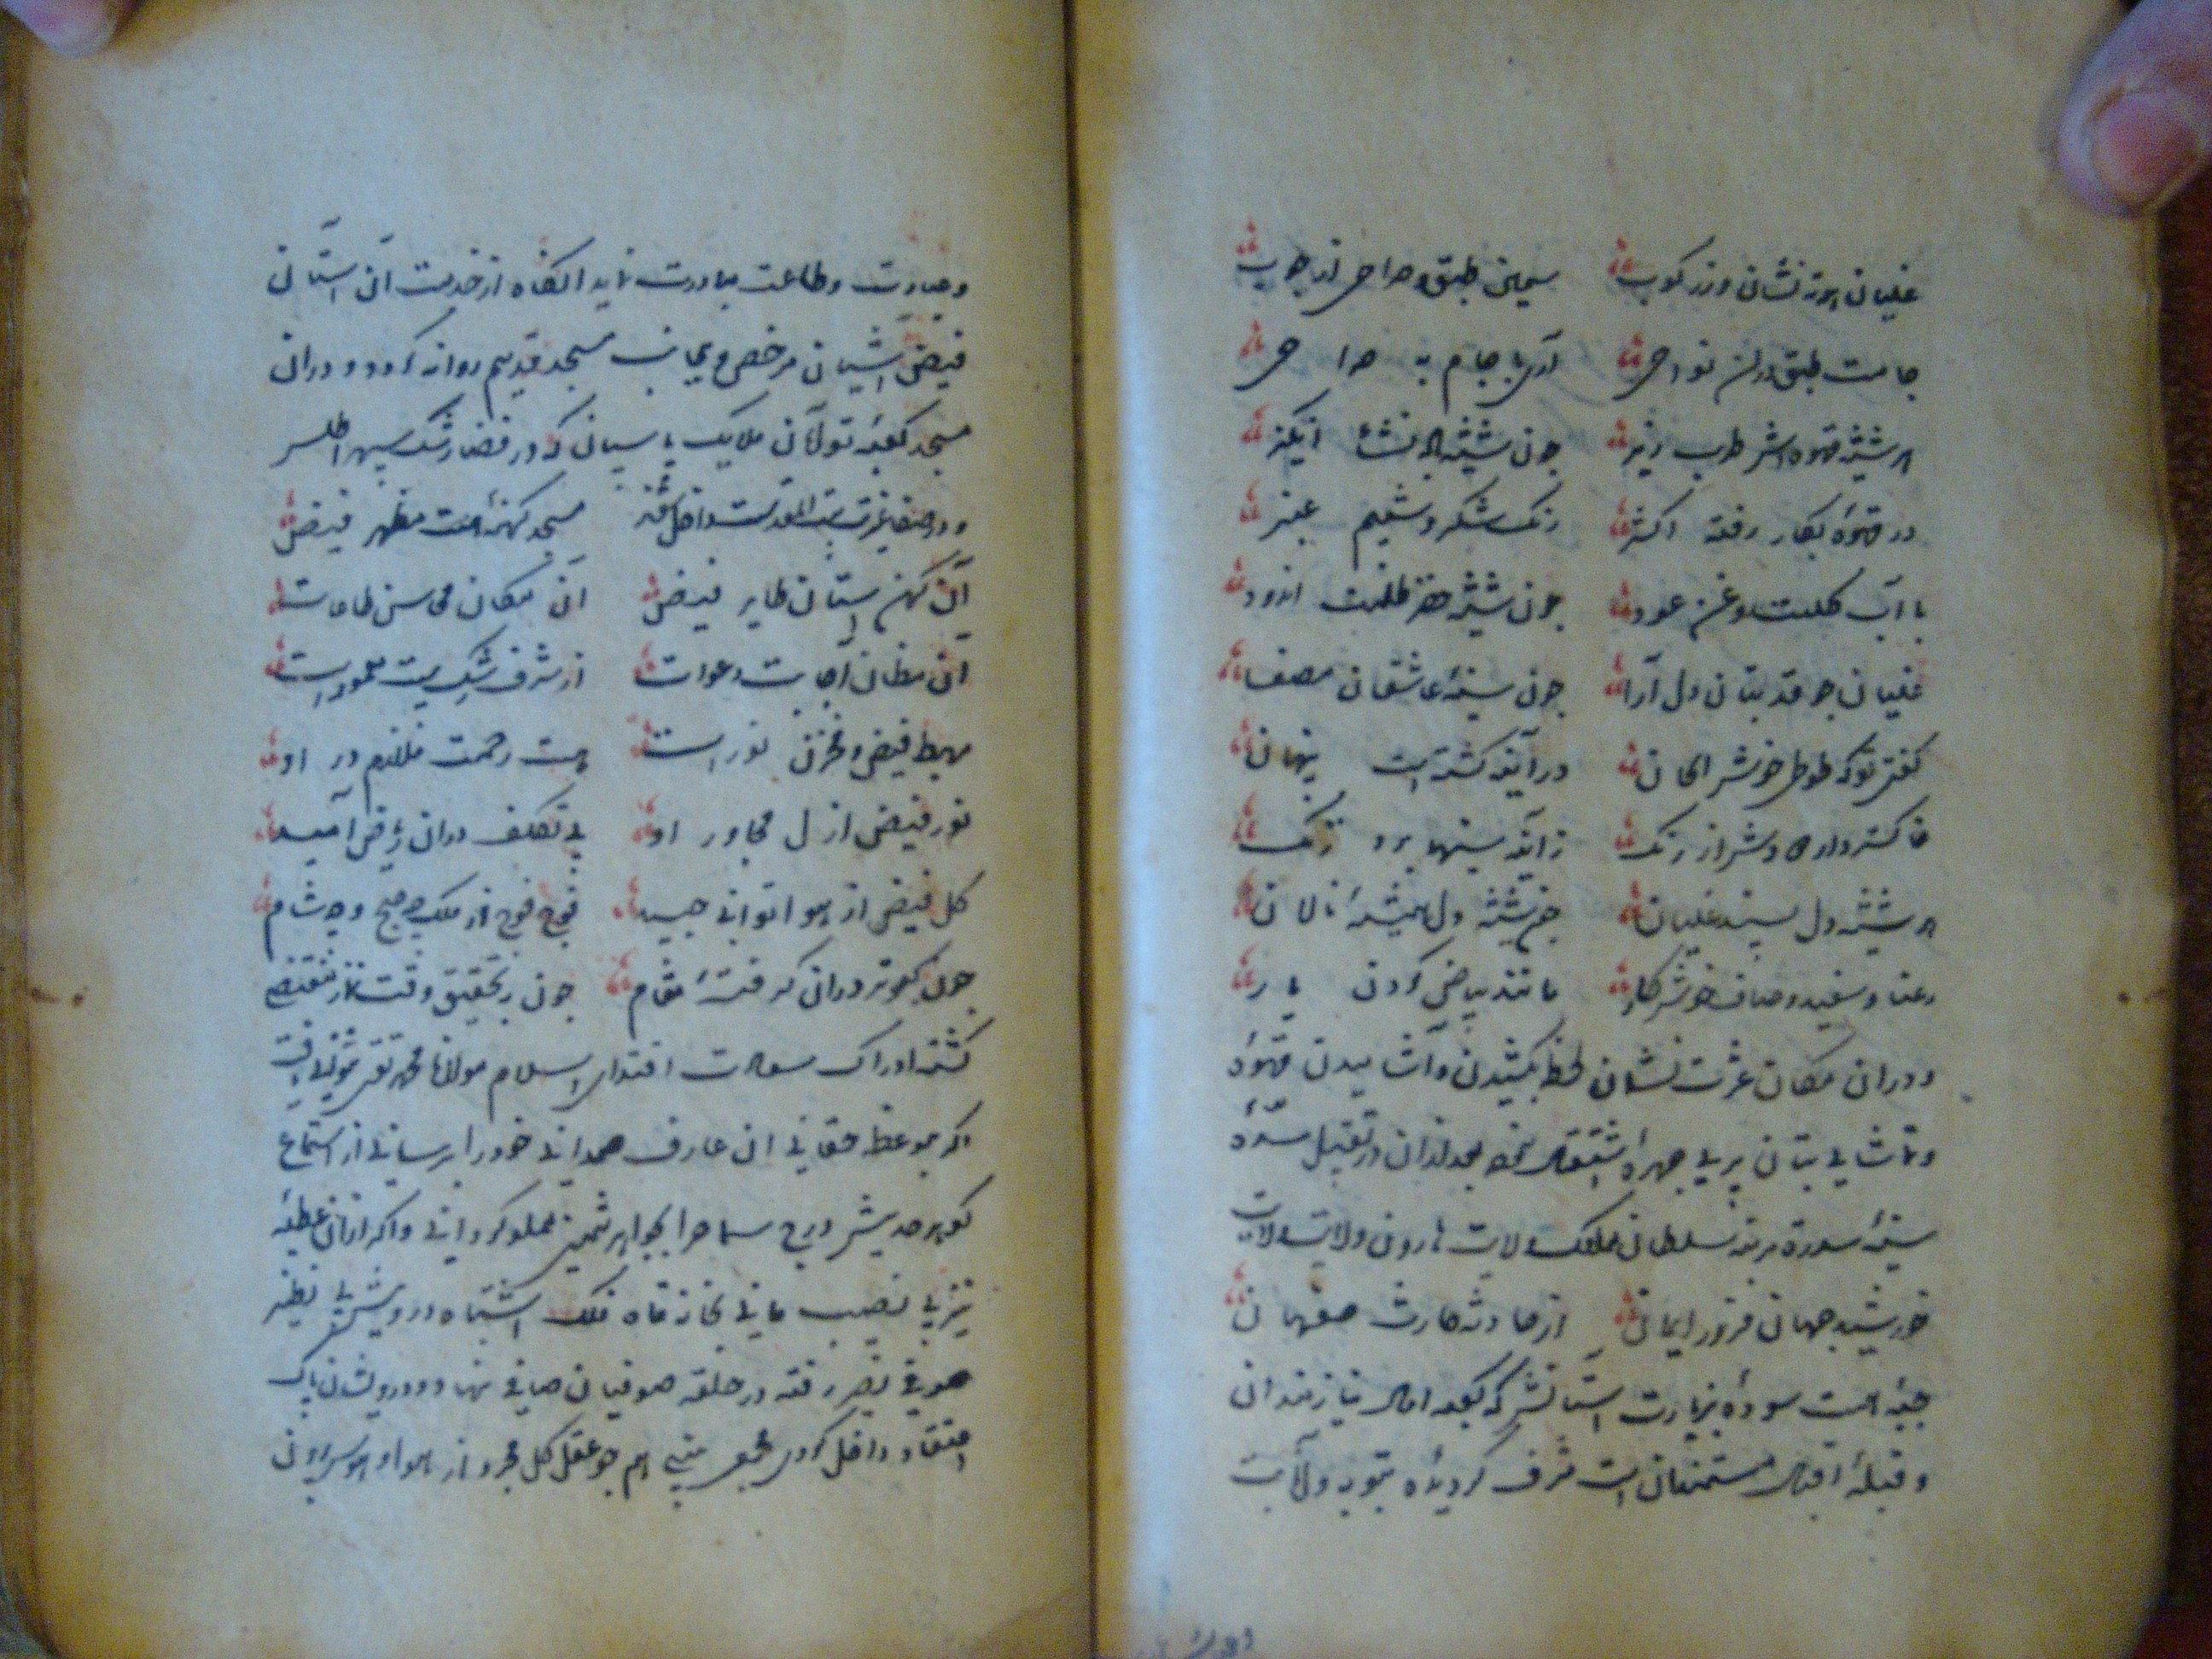 غلیان بوته نشان و زرکوب سیمین طبق و صراحی
جامت طبق نواحی آری با جام به صراحی
هر شیشه قهوه اش طرب ریز چون شیشه نشئه انگیز
در قهوه بکار رفته اکثر رنک شکر و شمیم عنبر
با آب کلست روغن عود چون شیشه ظلمت اندود
غلیان چو قد بتان دل آرا چون سینه عاشقان مصفا
کفتی تو که طوطی خوش الحان در آینه کشته است پنهان
خاکستر از رنک ز آینه سینها برد زنک
هر شیشه دل بسینه غلیان چون شیشه دل همیشه نالان
رعنا و سفید و صاف و خوش کار مانند بیاض کردن یار
و دران مکان عشرت نشان لحظه بکشیدن و آشامیدن قهوه
و تماشای بتان پری چهره اشتغال بعد ازان در تقبیل سده
سینه سدره مرتبه سلطان ملک ولایت هارون ولایت
خورشید جهان فروز ایمان از حادثه حارث صفهان
جبهه است سوده بزیارت آستانش که کعبه آمال نیازمندان
و قبله اقبال مستمندان است مشرف کردیده بتوبه و انابت
و عبادت و طاعت مبادرت نماید آنکاه از خدمت آن آستان
فیض آشیان مرخص و بجانب مسجد قدیم روانه کردد و دران
مسجد کعبه تولای ملایک پاسبان که در فضا رشک سپهر اطلس
و در صفا غیرت بیت المقدس است داخل شو مسجد کهنه است مظهر فیض
آن کهن آستان طایر فیض آن مکان محاسن طاعات
آن مظان اجابت دعوات از شرف رشک بیت معمور است
مهبط فیض و مخزن نور است هست رحمت ملازم در او
نور فیض ازل مجاور او بی تکلف دران ریاض امید
کل فیض از هوا توانی چید فوج فوج از ملک چه صبح و چه شام
چون کبوتر دران کرفته مقام چون بتحقیق وقت نماز منقضی
کشته ادراک سعادت اقتدای اسلام مولانا محمد تقی نتوانی یافت
اکر بموعظه حقانی آن عارف صمدانی خود را برسانی از استماع
کوهر حدیثش درج سامعه را بجواهر ثمین مملو کردانی و اکر ازان عطیه
نیز بی نصیب مانی بخانقاه فلک اشتباه درویش بی نظیر
صوفی نصیر رفته در حلقه صوفیان صافی نهاد و درویشان پاک
اعتقاد داخل کردی جمعی بینی هم چو عقل کل مجرد از هوا و هوس